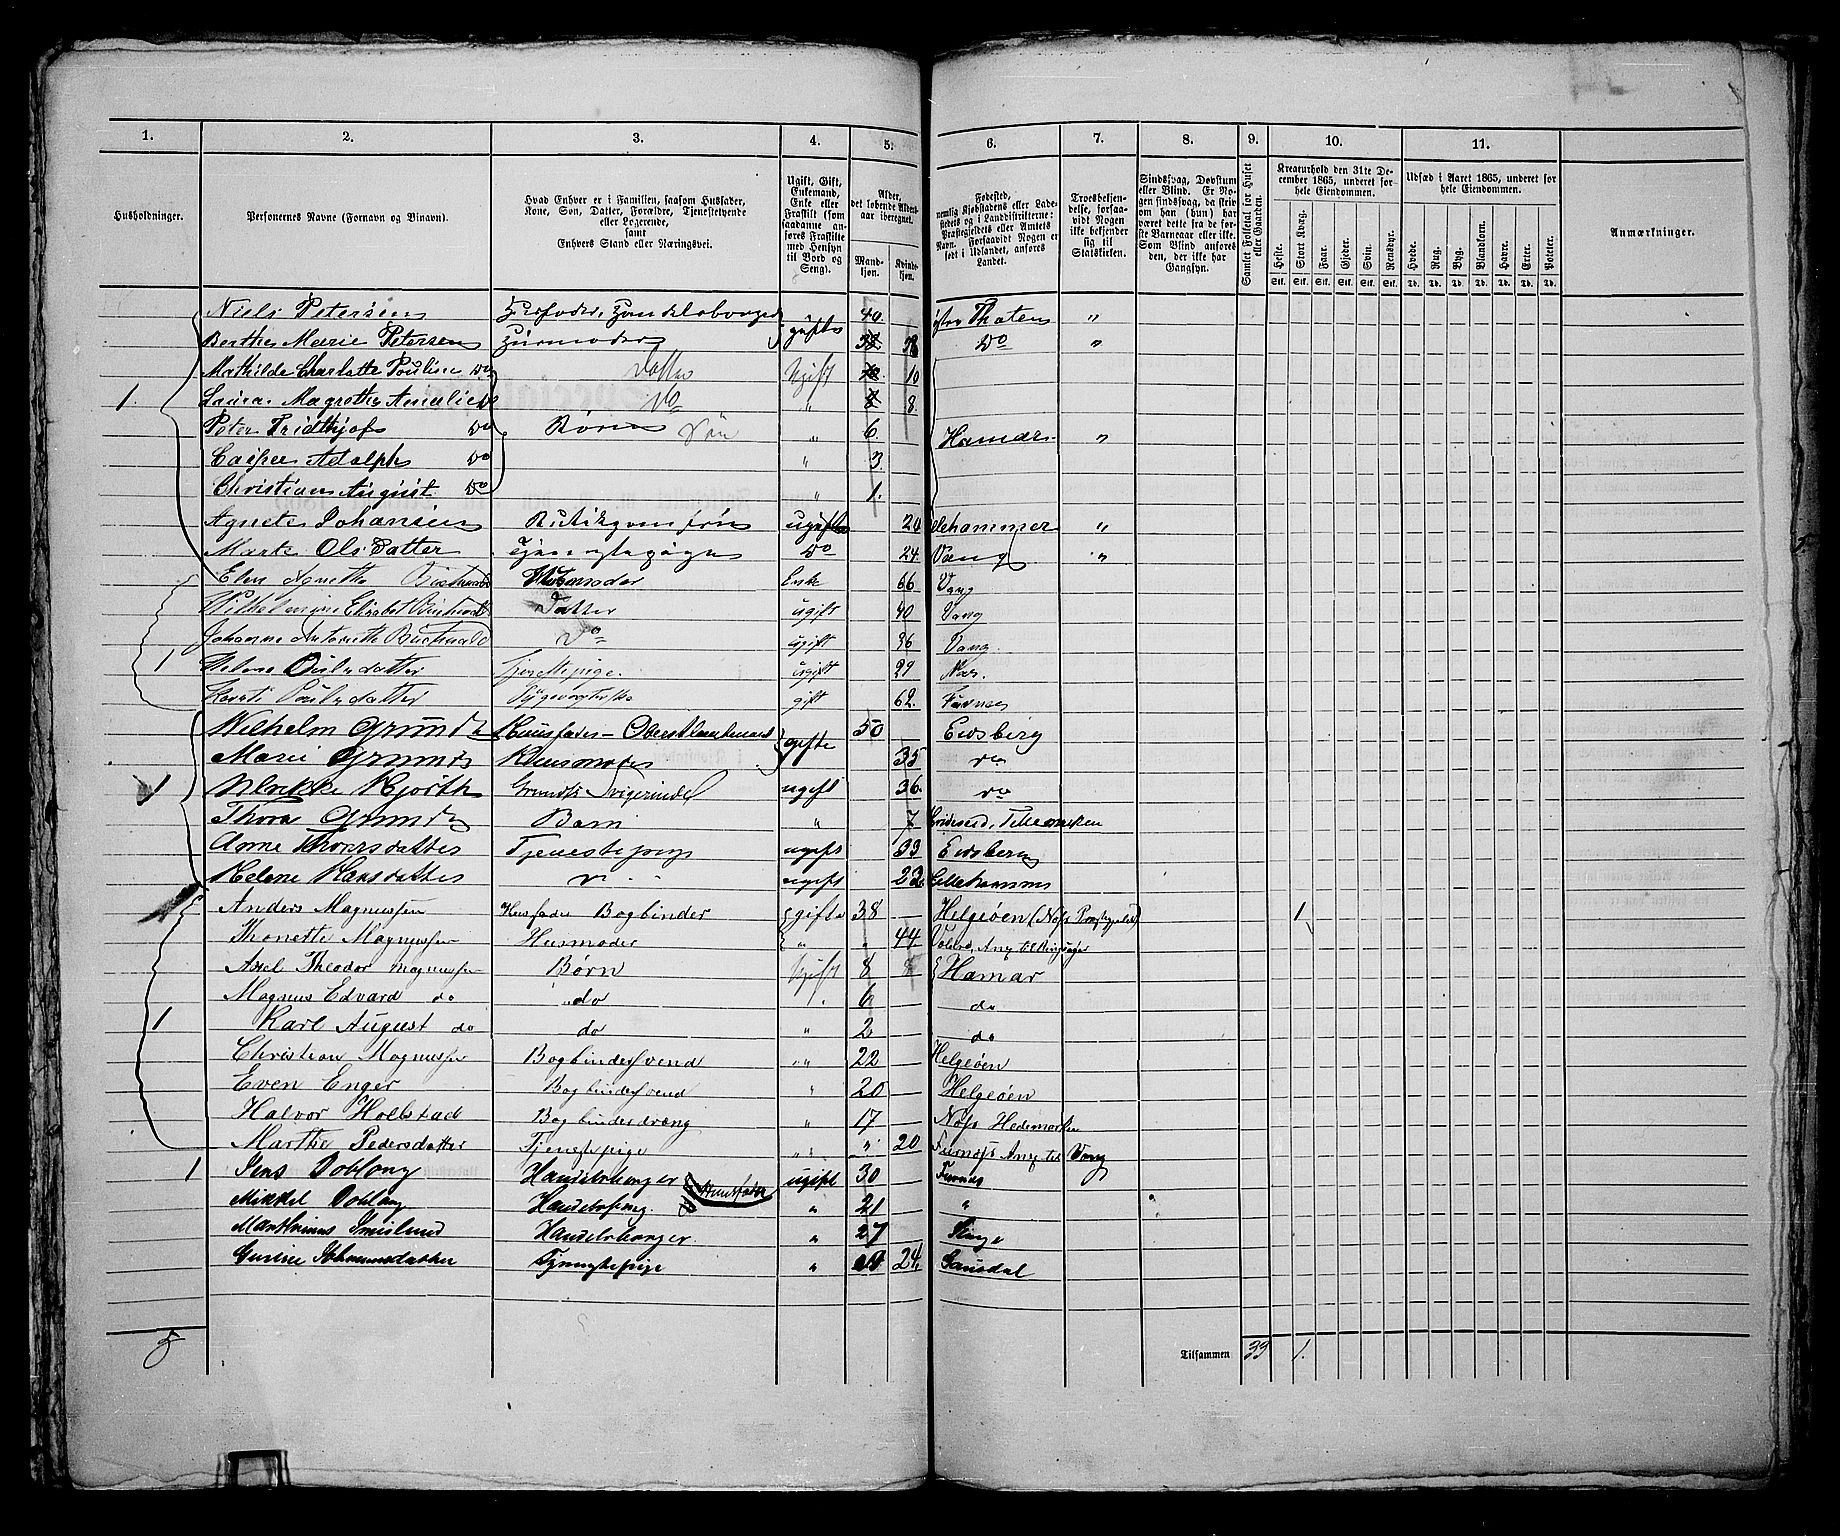 1. 2. 3. 4. 5. 6. 7. 8. 9. 10. 11.
Husholdninger. Personernes Navne (Fornavn og Tilnavn). Hvad Enhver er i Familien, saasom Husfader, Kone, Søn, Datter, Forældre, Tjenestetyende eller Logerende, samt Enhvers Stand eller Næringsvei. Ugift, Gift, Enkemand, Enke eller Fraskilt (som saadanne anføres Fraskilte med Hensyn til Bord og Seng). Alder, det løbende Alders-aar iberegnet. Mandkjøn. Kvindekjøn. Fødested, nemlig Kjøbstadens eller Ladestedets og i Landdistrikterne: Præstegjeldets eller Amtets Navn. Forsaavidt Nogen er født i Udlandet, anføres Landet. Troesbekjendelse, forsaavidt Nogen ikke bekjender sig til Statskirken. Sindssvag, Døvstum eller Blind. Er Nogen sindssvag, da skriv om han (hun) har været dette fra de første Barneaar eller ikke. Som Blind anføres den, der ikke har Gangsyn. Samlet Folketal for Huset eller Gaarden. Kreaturhold den 31te December 1865, underet for hele Eiendommen. Udsæd i Aaret 1865, underet for hele Eiendommen. Anmærkninger.
Heste. Stort Kvæg. Faar. Gjeder. Svin. Rensdyr. Hvede. Rug. Byg. Blandkorn. Havre. Erter. Poteter.
Stk. Stk. Stk. Stk. Stk. Stk. Td. Td. Td. Td. Td. Td. Td.
Niels Petersen 40. "
Berthe Marie Petersen Husmoder gifte Do "
Mathilde Charlotte Pouline Do Datter Ugift 10
1. Laura Magrethe Amalie Do Do " 8 8.
Peter Fridthjof Do Børn Søn " 6. Hamar "
Casper Adolph Do " 3.
Christian August Do " 1.
Agnete Johansen ugift 20 "
Marte Ols Datter Do 24. Vang "
Elen Agnethe Buchwald Husmoder Enke 66 Vang
Wilhelmine Elisabet Buchwald Datter ugift 40 Vang
Johanne Antonette Buchwald Do ugift 36 Vang.
1 Helene Tjenestepige. ugift 29
Poulsdatter gift 62. Furnes
Wilhelm Grundt Huusfader - Oberstlieutenant gifte 50 Eidsberg
Marie Grundt Huusmoder 35 do
1 Ulrikke Hjorth Grundts Svigerinde ugift 36. do
Thora Grundt Barn " 7
Anne Thorersdatter Tjenestepige ugift 33 Eidsberg
Helene Hansdatter do " ugift 23 Lillehammer
Anders Magnussen Husfader Bogbinder gifte 38 Helgeøen (Næs Præstegjeld) 1
Thonette Magnussen Husmoder " " 44
Axel Theodor Magnussen Børn Ugift 8 Hamar
Magnus Edvard do " do " 6 do
1 Karl August do do " 2 do
Christian Magnussen Bogbindersvend " 22 Helgeøen
Even Enger Bogbindersvend " 20 Helgeøen
Halvor Holstad Bogbinderdræng " 17 Næs Hedemarken
Marthe Pedersdatter Tjenestepige " " 20 Furnæs Anx til Vang
1 Jens Doblong Handelsborger Huusfader ugift 30 Furnes
Mikkel Doblong " 21 "
Handelsborger " 27
Tjenestepige " 24. Gausdal
5 Tilsammen 33 1.